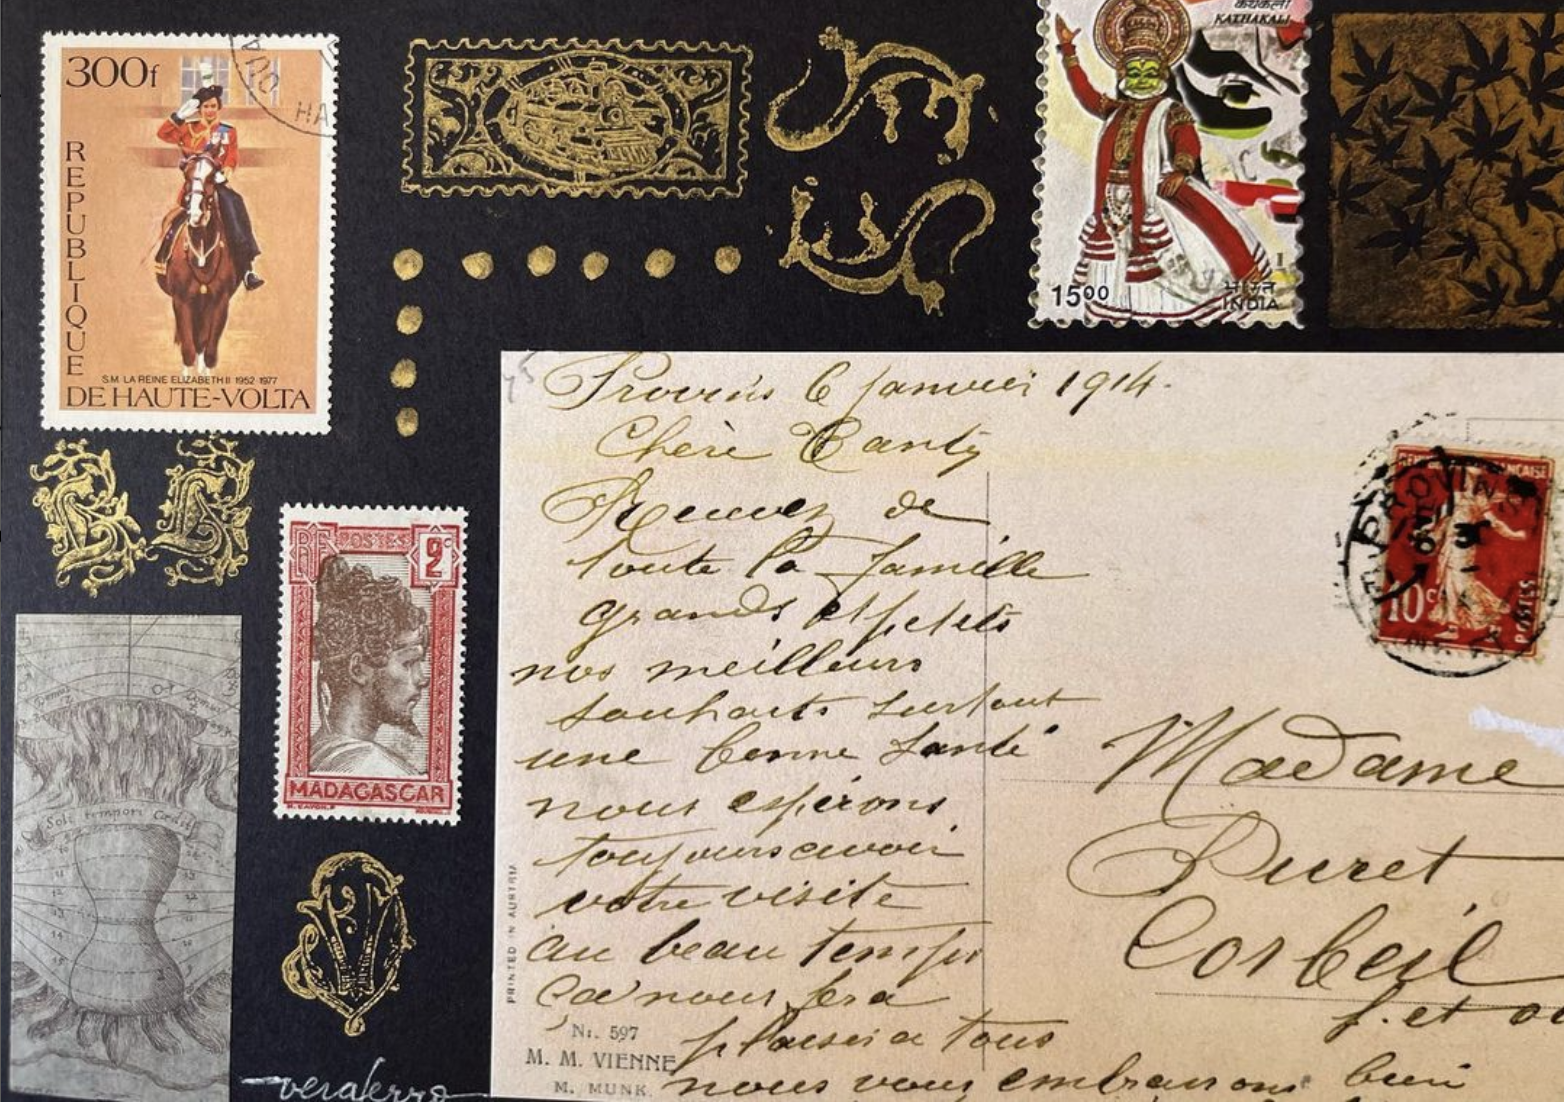 300f
REPUBLIQUE
S.M. LA REINE ELIZABETH II 1952-1977
DE HAUTE-VOLTA
HA
KATHAKALI
1500
भारत
INDIA
RF POSTES 2c
MADAGASCAR
Soli tempori Cedit
Provins 6 janvier 1914.
Chère Tanty
Recevez de
toute la famille
grands et petits
nos meilleurs
souhaits surtout
une bonne santé
nous espérons
toujours avoir
votre visite
au beau temps
ça nous fera
plaisir a tous
nous vous embrassons bien
PRINTED IN AUSTRIA
Nr. 597
M. M. VIENNE
M. MUNK
PROVINS
10c
POSTES
Madame
Puret
Corbeil
S. et O